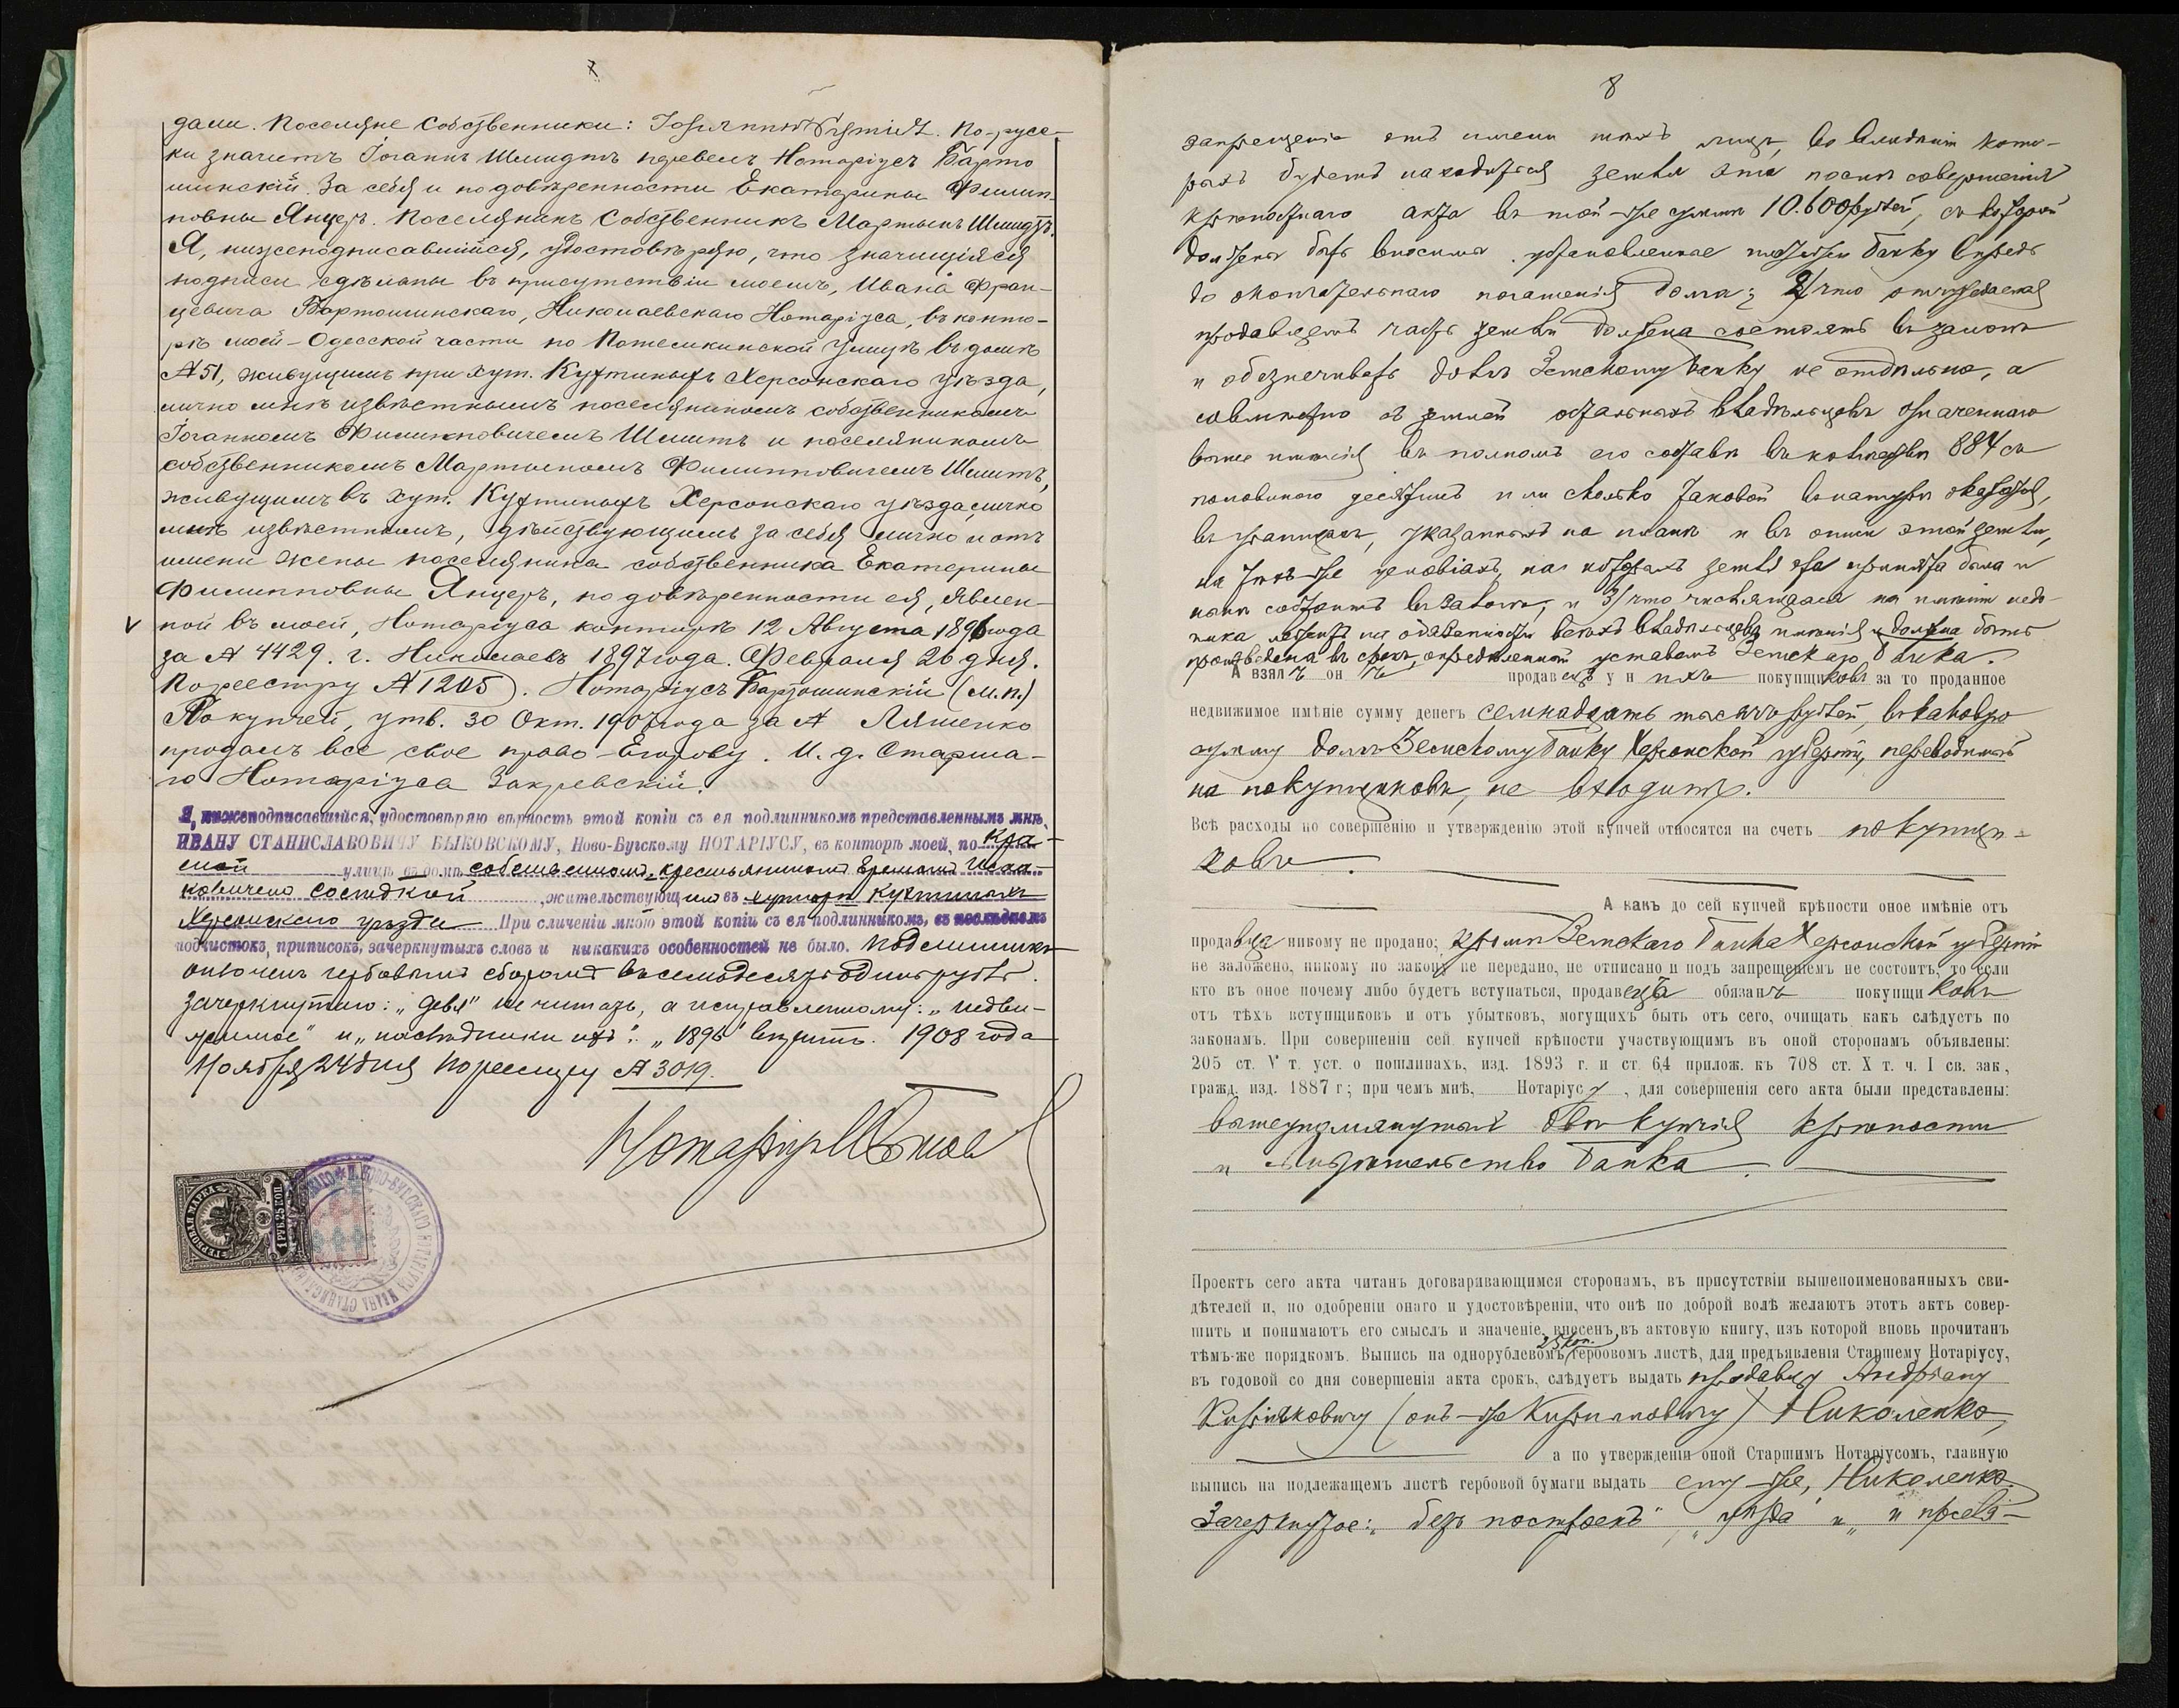 7
дали. Поселяне собственники: Johannes Schmidt. По-русс-
ки значитъ Іоганнъ Шмидтъ перевелъ Нотаріусъ Барто
шинскій. За себя и по довѣренности Екатерины Филип-
повны Янцеръ. Поселянинъ собственникъ Мартынъ Шмидтъ.
Я, нижеподписавшійся, удостовѣряю, что значущіяся
подписи сдѣланы въ присутствіи моемъ, Ивана Фран-
цевича Бартошинскаго, Николаевскаго Нотаріуса, въ конто-
рѣ моей-Одесской части по Потемкинской улицѣ въ домѣ
№ 51, живущимъ при хут. Кухтиныхъ Херсонскаго уѣзда,
лично мнѣ извѣстнымъ поселяниномъ собственникомъ
Іоганномъ Филипповичемъ Шмитъ и поселяниномъ
собственникомъ Мартыномъ Филипповичемъ Шмитъ,
живущимъ въ хут. Кухтиныхъ Херсонскаго уѣзда, лично
мнѣ извѣстнымъ, дѣйствующимъ за себя лично и отъ
имени жены поселянина собственника Екатерины
Филипповны Янцеръ, по довѣренности ея, явлен-
V ной въ моей, Нотаріуса конторѣ 12 Августа 1896 года
за № 4429. г. Николаевъ 1897 года. Февраля 26 дня.
По реестру № 1205). Нотаріусъ Бартошинскій (М.П.)
По купчей, утв. 30 Окт. 1907 года за № Ляшенко
продалъ все свое право Егорову. И. д. Старша-
го Нотаріуса Закревскій.
Я, нижеподписавшійся, удостовѣряю вѣрность этой копіи съ ея подлинникомъ представленнымъ мнѣ,
ИВАНУ СТАНИСЛАВОВИЧУ БЫКОВСКОМУ, Ново-Бугскому НОТАРІУСУ, въ конторѣ моей, по
улицѣ въ домѣ собственномъ, крестьяниномъ
, жительствующимъ въ хуторѣ Кухтиныхъ
Херсонскаго уѣзда. При сличеніи мною этой копіи съ ея подлинникомъ, въ послѣднемъ
подчистокъ, приписокъ, зачеркнутыхъ словъ и никакихъ особенностей не было. Подлинникъ
оплоченъ гербовымъ сборомъ въ семьдесятъ одинъ рубль.
Зачеркнутаго: „ не читать, а исправленному: „недви-
жимое" и „ "1896" вѣрить. 1908 года
Ноября 24 дня По реестру № 3019.
Нотаріусъ
ГЕРБОВАЯ МАРКА
1 РУБ 25 КОП.
8
запрещенія отъ имени тѣхъ лицъ, во владѣніи кото-
рыхъ будетъ находиться земля эта послѣ совершенія
крѣпостнаго акта въ той-же суммѣ 10.600 рублей, съ которой
должны быть вносимы установленные платежи банку впредь
до окончательнаго погашенія долга; 2/ что отчуждаемая
продавцемъ часть земли должна состоять въ залогѣ
и обезпечивать долгъ Земскому банку не отдѣльно, а
совмѣстно съ землей остальныхъ владѣльцевъ означеннаго
выше имѣнія въ полномъ его составѣ въ количествѣ 884 съ
половиною десятинъ или сколько таковой въ натурѣ окажется,
въ границахъ, указанныхъ на планѣ и въ описи этой земли,
на тѣхъ-же условіяхъ, на которыхъ земля эта принята была и
нынѣ состоитъ въ залогѣ, и 3/ что числящаяся на имѣніи недо-
имка лежитъ на обязанности всѣхъ владѣльцевъ имѣнія и должна быть
произведена въ срокъ, опредѣленный уставомъ Земскаго банка.
А взялъ онъ продавецъ у нихъ покупщиковъ за то проданное
недвижимое имѣніе сумму денегъ семнадцать тысячъ рублей, въ каковую
сумму долгъ Земскому банку Херсонской губерніи, переводимый
на покупщиковъ, не входитъ.
Всѣ расходы по совершенію и утвержденію этой купчей относятся на счетъ покупщи-
ковъ.
А какъ до сей купчей крѣпости оное имѣніе отъ
продавца никому не продано; кромѣ Земскаго банка Херсонской губерніи
не заложено, никому по закону не передано, не отписано и подъ запрещеніемъ не состоитъ, то если
кто въ оное почему либо будетъ вступаться, продавецъ обязанъ покупщиковъ
отъ тѣхъ вступщиковъ и отъ убытковъ, могущихъ быть отъ сего, очищать какъ слѣдуетъ по
законамъ. При совершеніи сей купчей крѣпости участвующимъ въ оной сторонамъ объявлены:
205 ст. V т. уст. о пошлинахъ, изд. 1893 г. и ст. 64 прилож. къ 708 ст. X т. ч. I св. зак.,
гражд. изд. 1887 г; при чемъ мнѣ, Нотаріусу, для совершенія сего акта были представлены:
вышеупомянутыя двѣ купчія крѣпости
и свидѣтельство банка.
Проектъ сего акта читанъ договаривающимся сторонамъ, въ присутствіи вышепоименованныхъ сви-
дѣтелей и, по одобреніи онаго и удостовѣреніи, что онѣ по доброй волѣ желаютъ этотъ актъ совер-
шить и понимаютъ его смыслъ и значеніе, внесенъ въ актовую книгу, изъ которой вновь прочитанъ
25 коп.
тѣмъ-же порядкомъ. Выпись на однорублевомъ гербовомъ листѣ, для предъявленія Старшему Нотаріусу,
въ годовой со дня совершенія акта срокъ, слѣдуетъ выдать продавцу Андріану
Кириковичу (онъ-же Кирилловичу) Николенко,
а по утвержденіи оной Старшимъ Нотаріусомъ, главную
выпись на подлежащемъ листѣ гербовой бумаги выдать ему-же, Николенко.
Зачеркнутое: „безъ построекъ" „уѣзда" и „